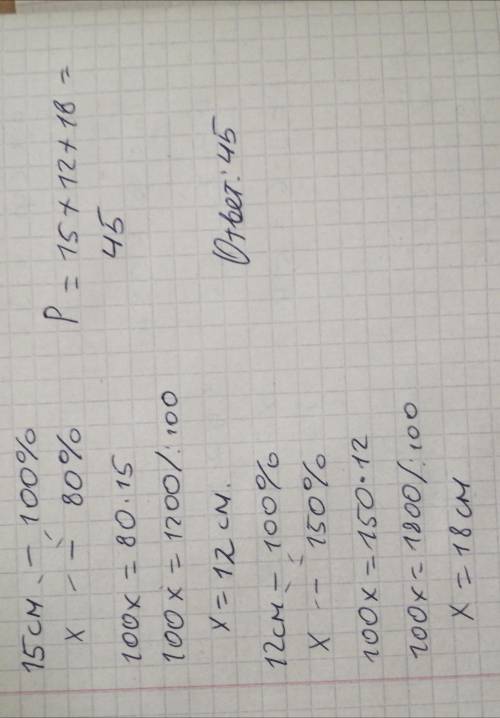 15см. – 100%
х – 80%
100х = 80·15
100х = 1200/:100
х = 12 см.
12см – 100%
х – 150%
100х = 150·12
100х = 1800/:100
х = 18 см
Р = 15+12+18 =
45
Ответ: 45